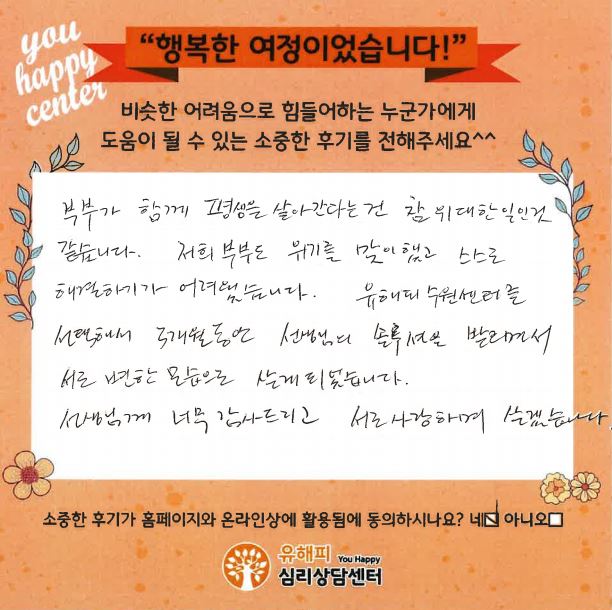 you
happy
center
“행복한 여정이었습니다!”
비슷한 어려움으로 힘들어하는 누군가에게
도움이 될 수 있는 소중한 후기를 전해주세요^^
부부가 함께 평생을 살아간다는 건 참 위대한 일인것
같습니다. 저희 부부도 위기를 맞이했고 스스로
해결하기가 어려웠습니다. 유해피 수원센터를
선택해서 5개월동안 선생님의 솔루션을 받으면서
서로 변한 모습으로 살게 되었습니다.
선생님께 너무 감사드리고 서로 사랑하며 살겠습니다.
소중한 후기가 홈페이지와 온라인상에 활용됨에 동의하시나요? 네☑ 아니오☐
유해피 You Happy
심리상담센터